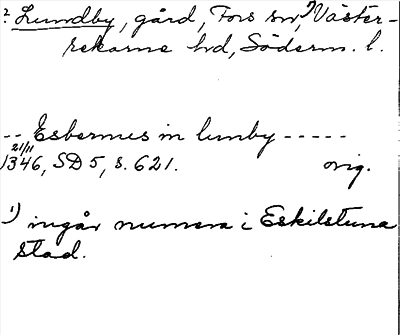 ? Lundby, gård, Fors sn,¹⁾ Väster-
rekarne hd, Söderm. l.
-- Esbernus in lunby -----
21/11
1346, SD 5, s. 621. orig.
1) ingår numera i Eskilstuna
stad.